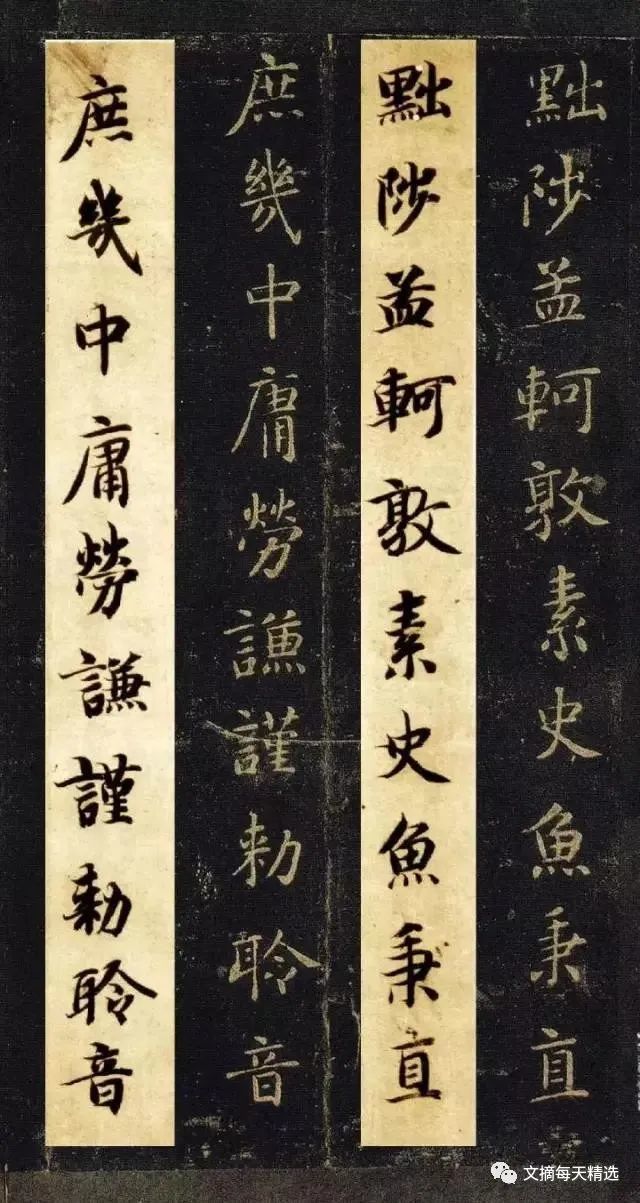 黜陟孟軻敦素史魚秉直
黜陟孟軻敦素史魚秉直
庶幾中庸勞謙謹勑聆音
庶幾中庸勞謙謹勑聆音
文摘每天精选